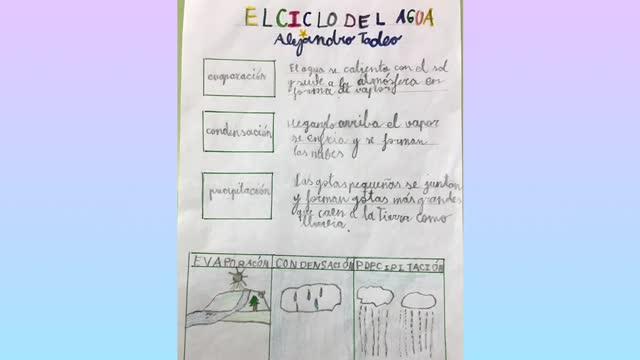 EL CICLO DEL AGUA
Alejandro Tadeo
evaporación
El agua se calienta con el sol
y sube a la atmósfera en
forma de vapor
condensación
llegando arriba el vapor
se enfria y se forman
las nubes
precipitación
Las gotas pequeñas se juntan
y forman gotas más grandes
que caen a la Tierra como
lluvia.
EVAPORACÓN
CONDENSACIÓN
PDPCIPITACIÓN